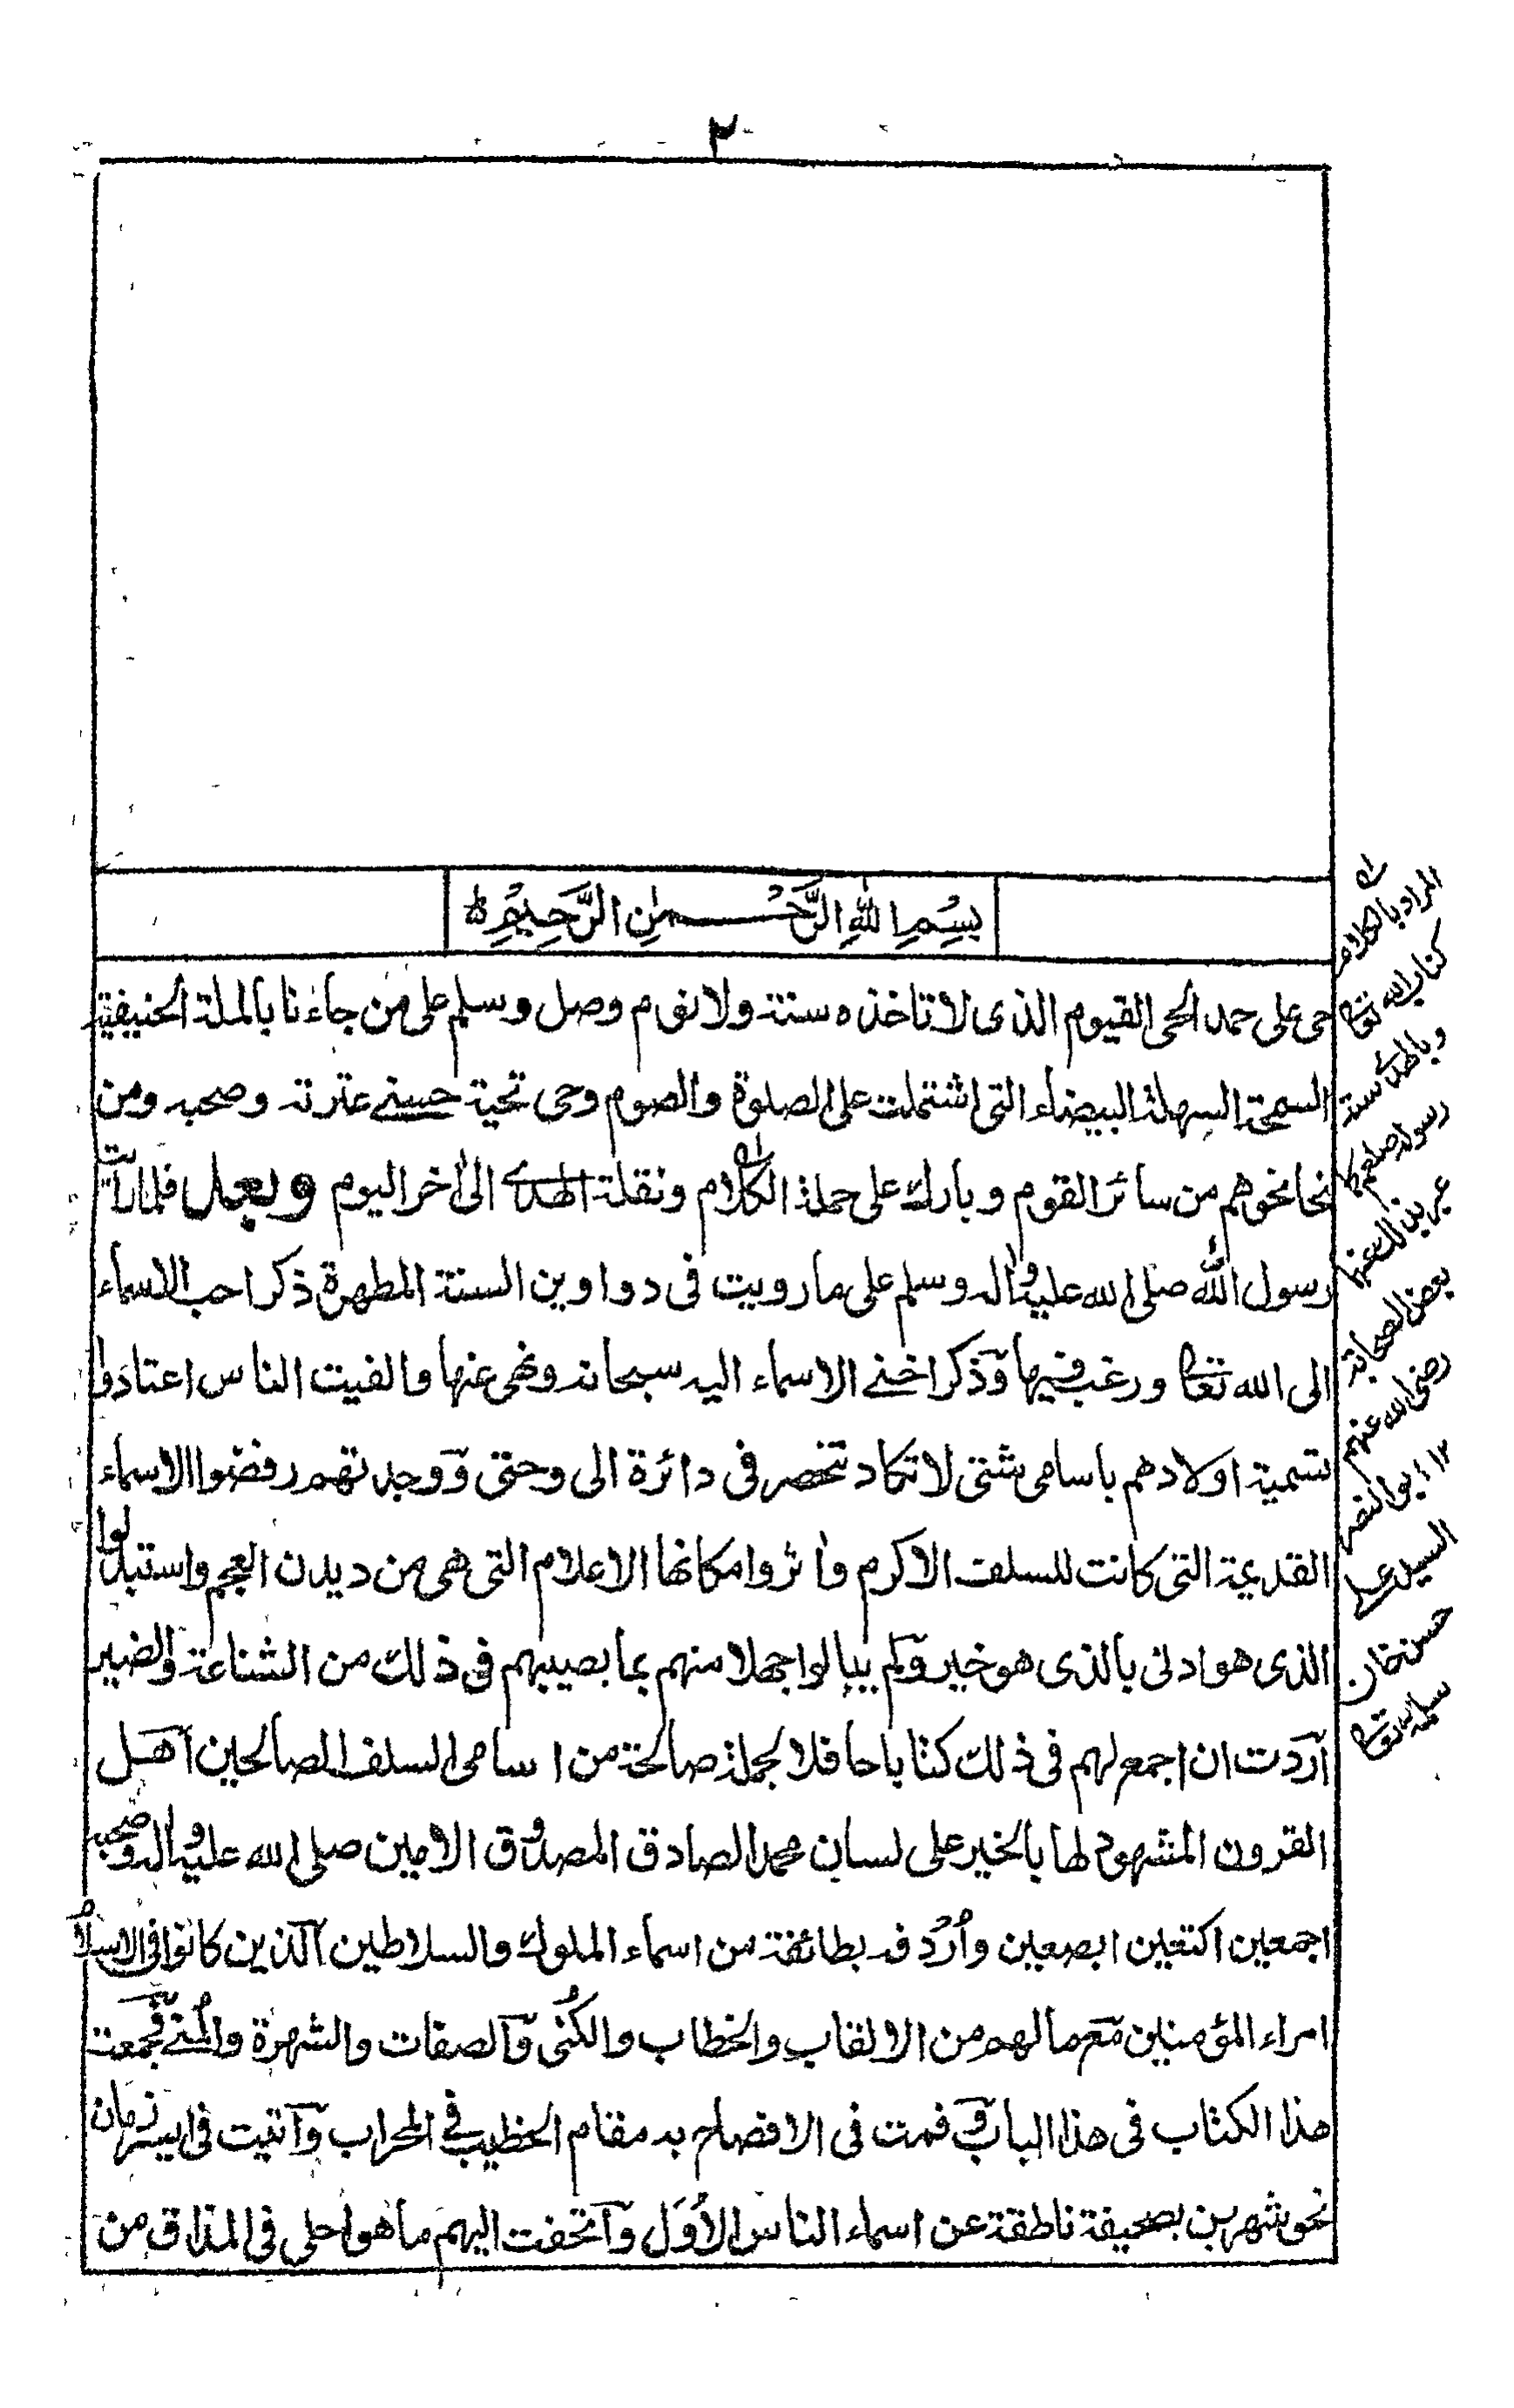 ٢
بِسْمِ اللّٰهِ الرَّحْمٰنِ الرَّحِيْمِ ط
حى على حمد الحى القيوم الذى لا تاخذه سنة ولا نوم وصل وسلم على من جاءنا بالملة الحنيفية
السمحة السهلة البيضاء التى اشتملت على الصلوة والصوم وحى تحية حسنے عترته وصحبه ومن
نحا نحوهم من سائر القوم وبارك على حملة الكلام ونقلة الهدے الى اٰخر اليوم وبعد فلما رايت
رسول الله صلى الله عليه واٰله وسلم على ما رويت فى دواوين السنة المطهرة ذكر احب الاسماء
الى الله تعالى ورغب فيها وذكر اخنے الاسماء اليه سبحانه ونهى عنها والفيت الناس اعتادوا
تسمية اولادهم باسامى شتى لا تكاد تنحصر فى دائرة الى وحتى ووجدتهم رفضوا الاسماء
القديمة التى كانت للسلف الاكرم واٰثروا مكانها الاعلام التى هى من ديدن العجم واستبدلوا
الذى هو ادنى بالذى هو خير ولم يبالوا جهلا منهم بما يصيبهم فى ذلك من الشناعة والضير
اردت ان اجمع لهم فى ذلك كتابا حافلا لجملة صالحة من اسامى السلف الصالحين اهل
القرون المشهود لها بالخير على لسان محمد الصادق المصدوق الامين صلى الله عليه واٰله وصحبه
اجمعين اكتعين ابصعين واُردفه بطائفة من اسماء الملوك والسلاطين الذين كانوا فى الاسلام
امراء المؤمنين مع ما لهم من الالقاب والخطاب والكُنى والصفات والشهرة والمُنے فجمعت
هذا الكتاب فى هذا الباب وقمت فى الافصاح به مقام الخطيب فے المحراب واتيت فى ايسر زمان
نحو شهرين بصحيفة ناطقة عن اسماء الناس الاُوَل واتحفت اليهم ما هو احلى فى المذاق من
المراد بالكلام
كتاب الله تعالى
وبالهدے سنة
رسوله صلعم كما
عبر بذلك عنهما
بعض الصحابة
رضى الله عنهم
١٢ ابو النصر
السيد على
حسن خان
سلمه الله تعالى